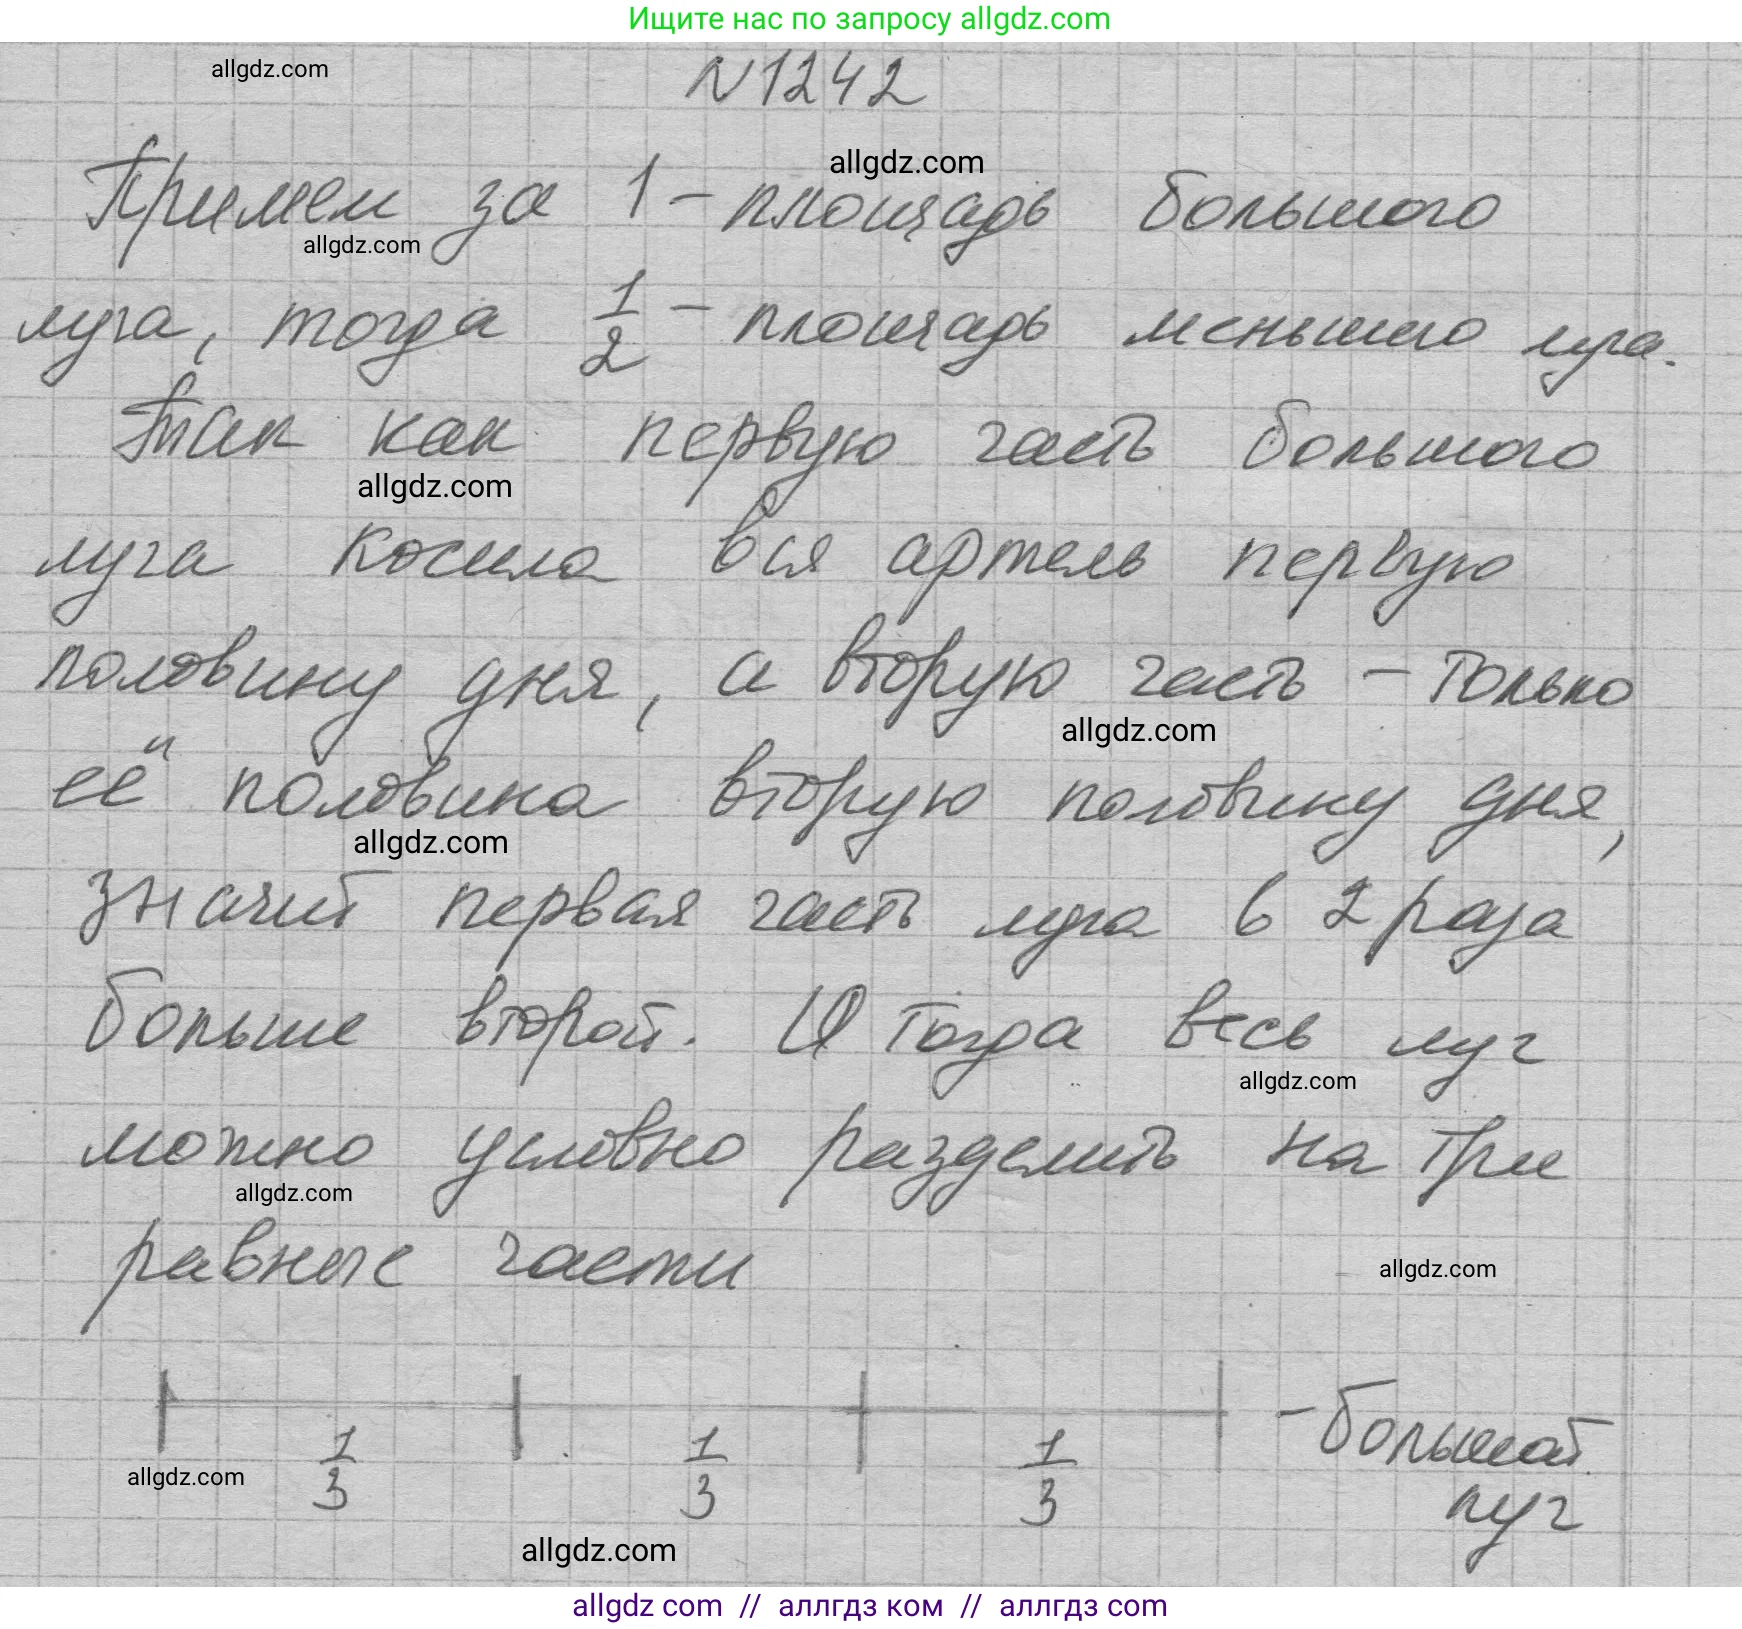 Ищите нас по запросу allgdz.com
allgdz.com
N 1242
allgdz.com
Примем за 1 - площадь большого
allgdz.com
луга, тогда 1/2 - площадь меньшего луга.
Так как первую часть большого
allgdz.com
луга косила вся артель первую
половину дня, а вторую часть - только
allgdz.com
её половина вторую половину дня,
allgdz.com
значит первая часть луга в 2 раза
больше второй. И тогда весь луг
allgdz.com
можно условно разделить на три
allgdz.com
равные части
allgdz.com
1/3 1/3 1/3 - большой
луг
allgdz.com
allgdz.com
allgdz com // аллгдз ком // аллгдз com